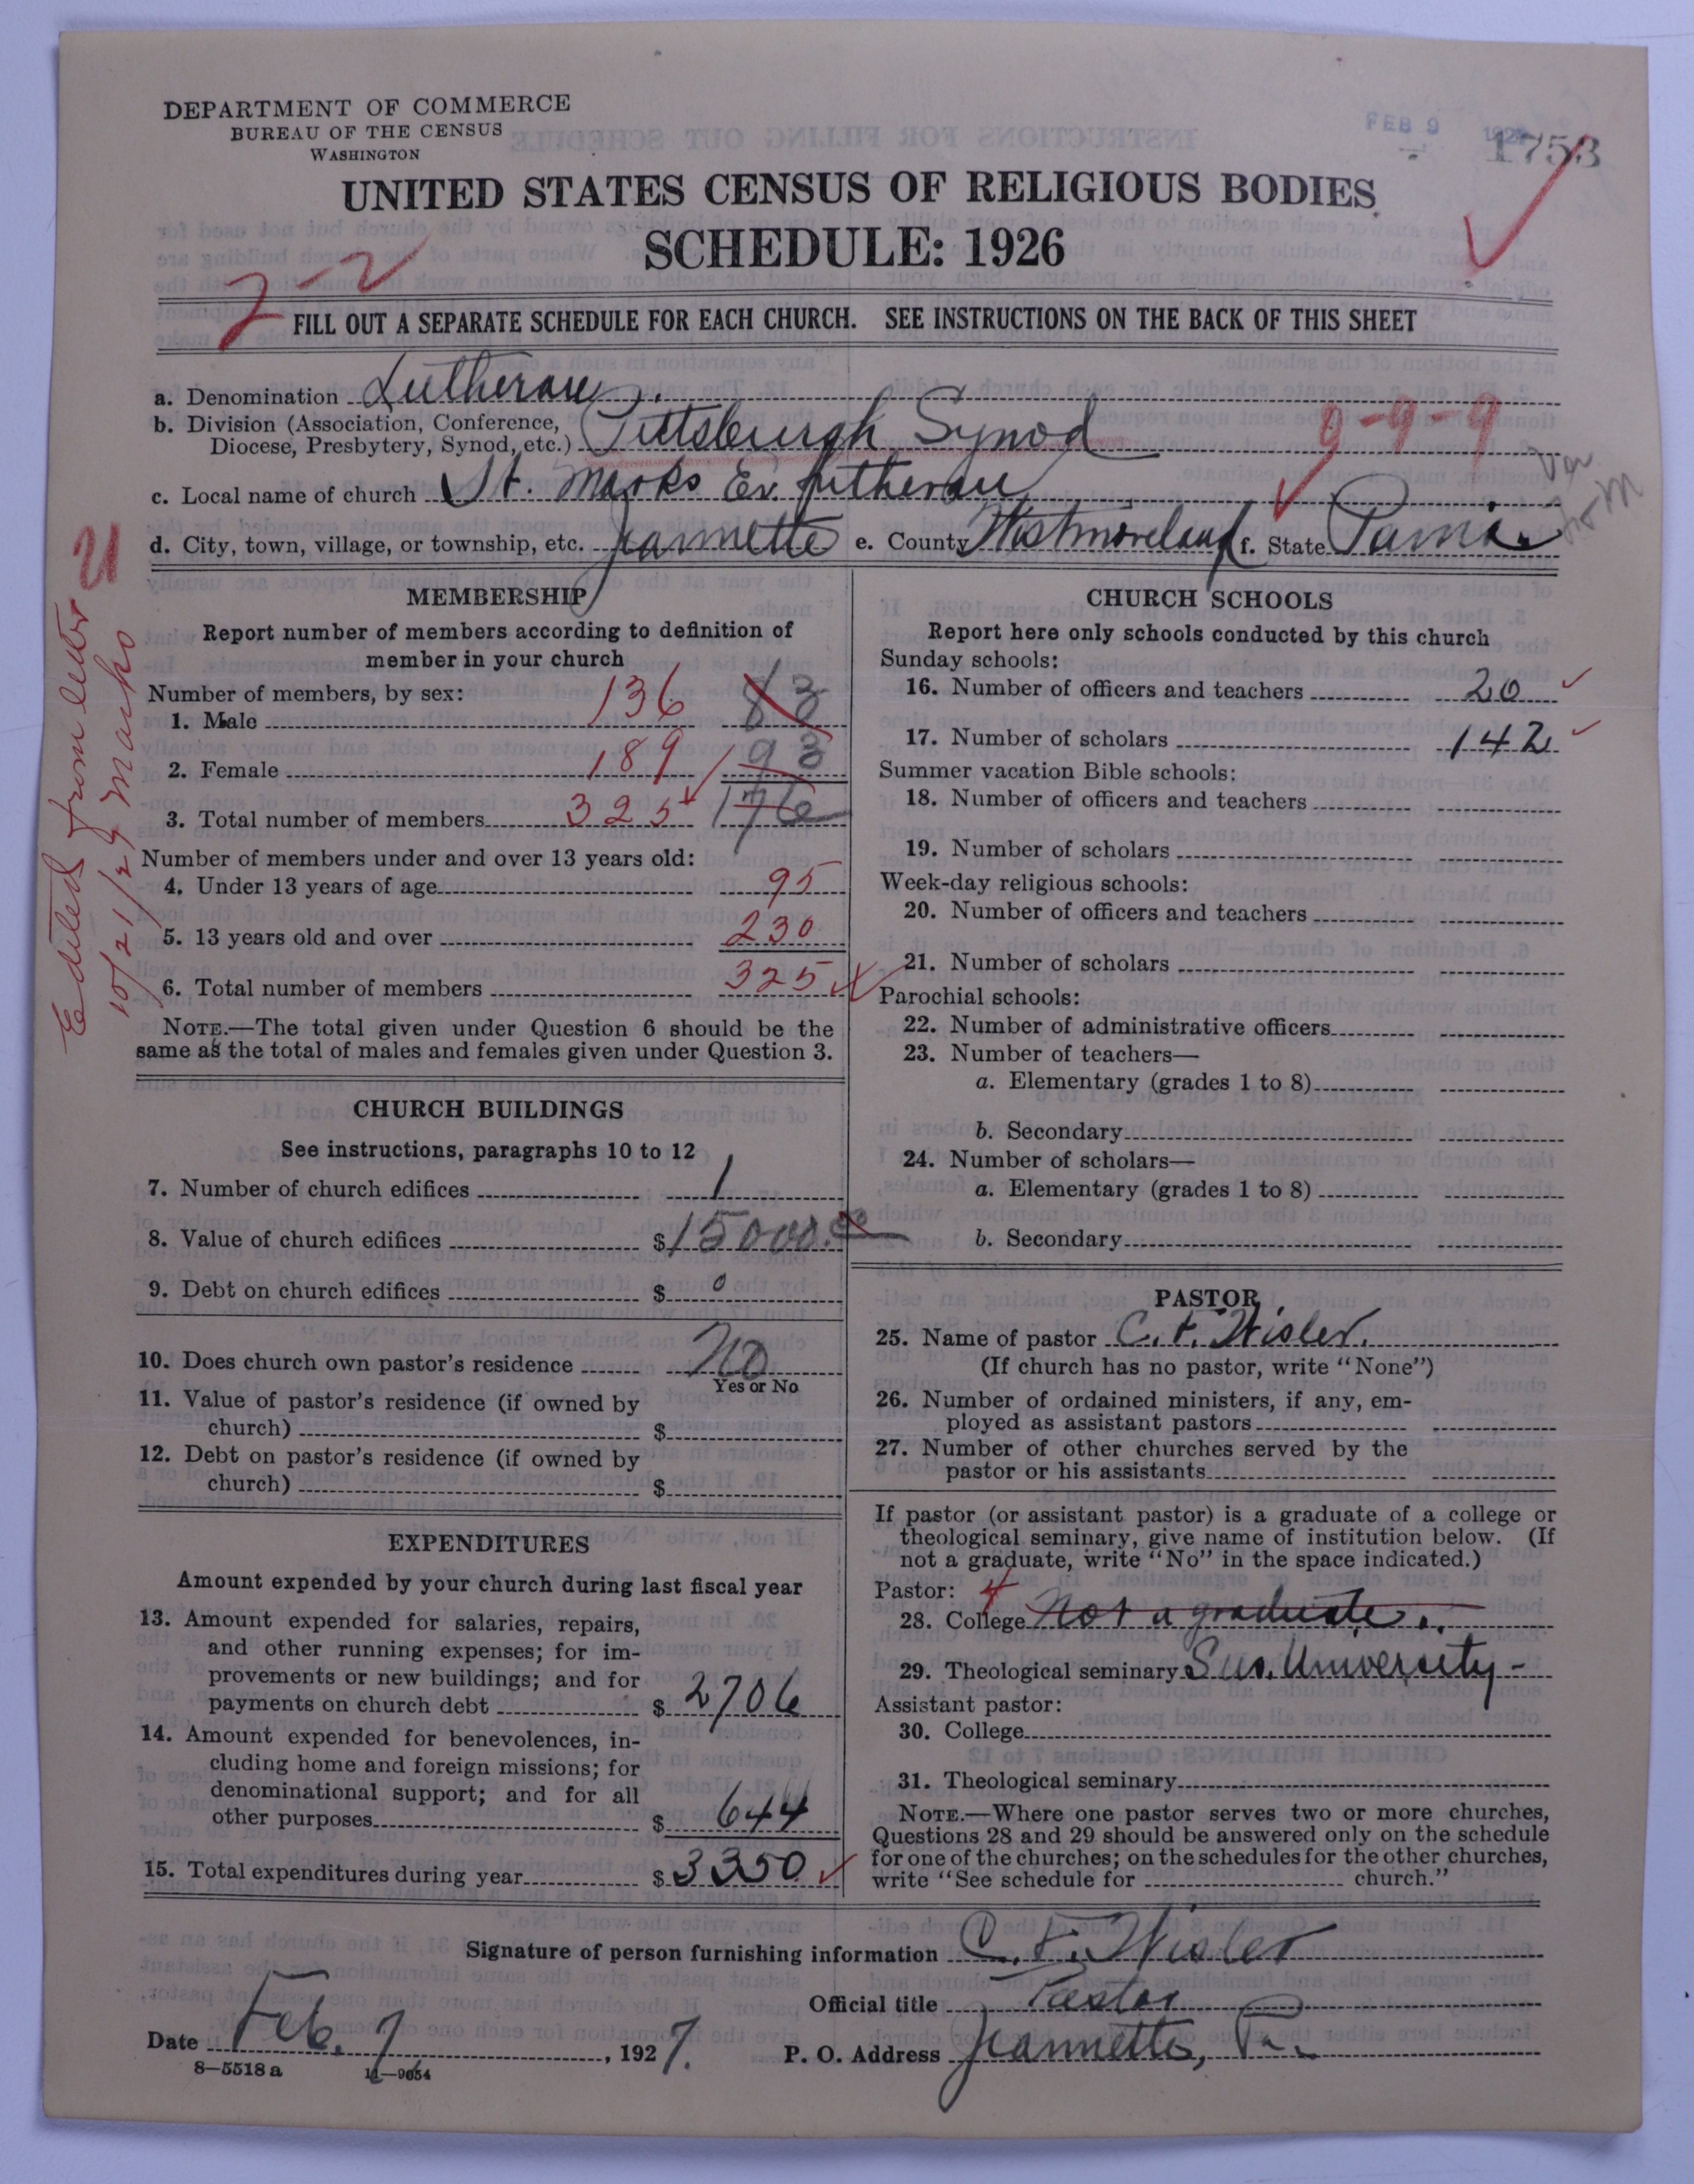 DEPARTMENT OF COMMERCE
BUREAU OF THE CENSUS
WASHINGTON
FEB 9
1753
UNITED STATES CENSUS OF RELIGIOUS BODIES
SCHEDULE: 1926
2-2
FILL OUT A SEPARATE SCHEDULE FOR EACH CHURCH. SEE INSTRUCTIONS ON THE BACK OF THIS SHEET
a. Denomination Lutheran.
b. Division (Association, Conference,
Diocese, Presbytery, Synod, etc.) Pittsburgh Synod 9-9-9
c. Local name of church St. Marks Ev. Lutheran
d. City, town, village, or township, etc. Jeannette e. County Westmoreland f. State Penna.
Edited from letter
10/21/29 Marko
MEMBERSHIP
Report number of members according to definition of
member in your church
Number of members, by sex:
1. Male 136 83
2. Female 189 93
3. Total number of members 325 176
Number of members under and over 13 years old:
4. Under 13 years of age 95
5. 13 years old and over 230
6. Total number of members 325
NOTE.—The total given under Question 6 should be the
same as the total of males and females given under Question 3.
CHURCH BUILDINGS
See instructions, paragraphs 10 to 12
7. Number of church edifices 1
8. Value of church edifices $15000.00
9. Debt on church edifices $ 0
10. Does church own pastor's residence No
Yes or No
11. Value of pastor's residence (if owned by
church) $
12. Debt on pastor's residence (if owned by
church) $
EXPENDITURES
Amount expended by your church during last fiscal year
13. Amount expended for salaries, repairs,
and other running expenses; for im-
provements or new buildings; and for
payments on church debt $ 2706
14. Amount expended for benevolences, in-
cluding home and foreign missions; for
denominational support; and for all
other purposes $ 644
15. Total expenditures during year $ 3350
CHURCH SCHOOLS
Report here only schools conducted by this church
Sunday schools:
16. Number of officers and teachers 20
17. Number of scholars 142
Summer vacation Bible schools:
18. Number of officers and teachers
19. Number of scholars
Week-day religious schools:
20. Number of officers and teachers
21. Number of scholars
Parochial schools:
22. Number of administrative officers
23. Number of teachers—
a. Elementary (grades 1 to 8)
b. Secondary
24. Number of scholars—
a. Elementary (grades 1 to 8)
b. Secondary
PASTOR
25. Name of pastor C. F. Wisler.
(If church has no pastor, write "None")
26. Number of ordained ministers, if any, em-
ployed as assistant pastors
27. Number of other churches served by the
pastor or his assistants
If pastor (or assistant pastor) is a graduate of a college or
theological seminary, give name of institution below. (If
not a graduate, write "No" in the space indicated.)
Pastor: 4
28. College Not a graduate.
29. Theological seminary Sus. University -
Assistant pastor:
30. College
31. Theological seminary
NOTE.—Where one pastor serves two or more churches,
Questions 28 and 29 should be answered only on the schedule
for one of the churches; on the schedules for the other churches,
write "See schedule for church."
Signature of person furnishing information C. F. Wisler
Official title Pastor
Date Feb. 7, 1927. P. O. Address Jeannette, Pa.
8—5518 a 11—9054